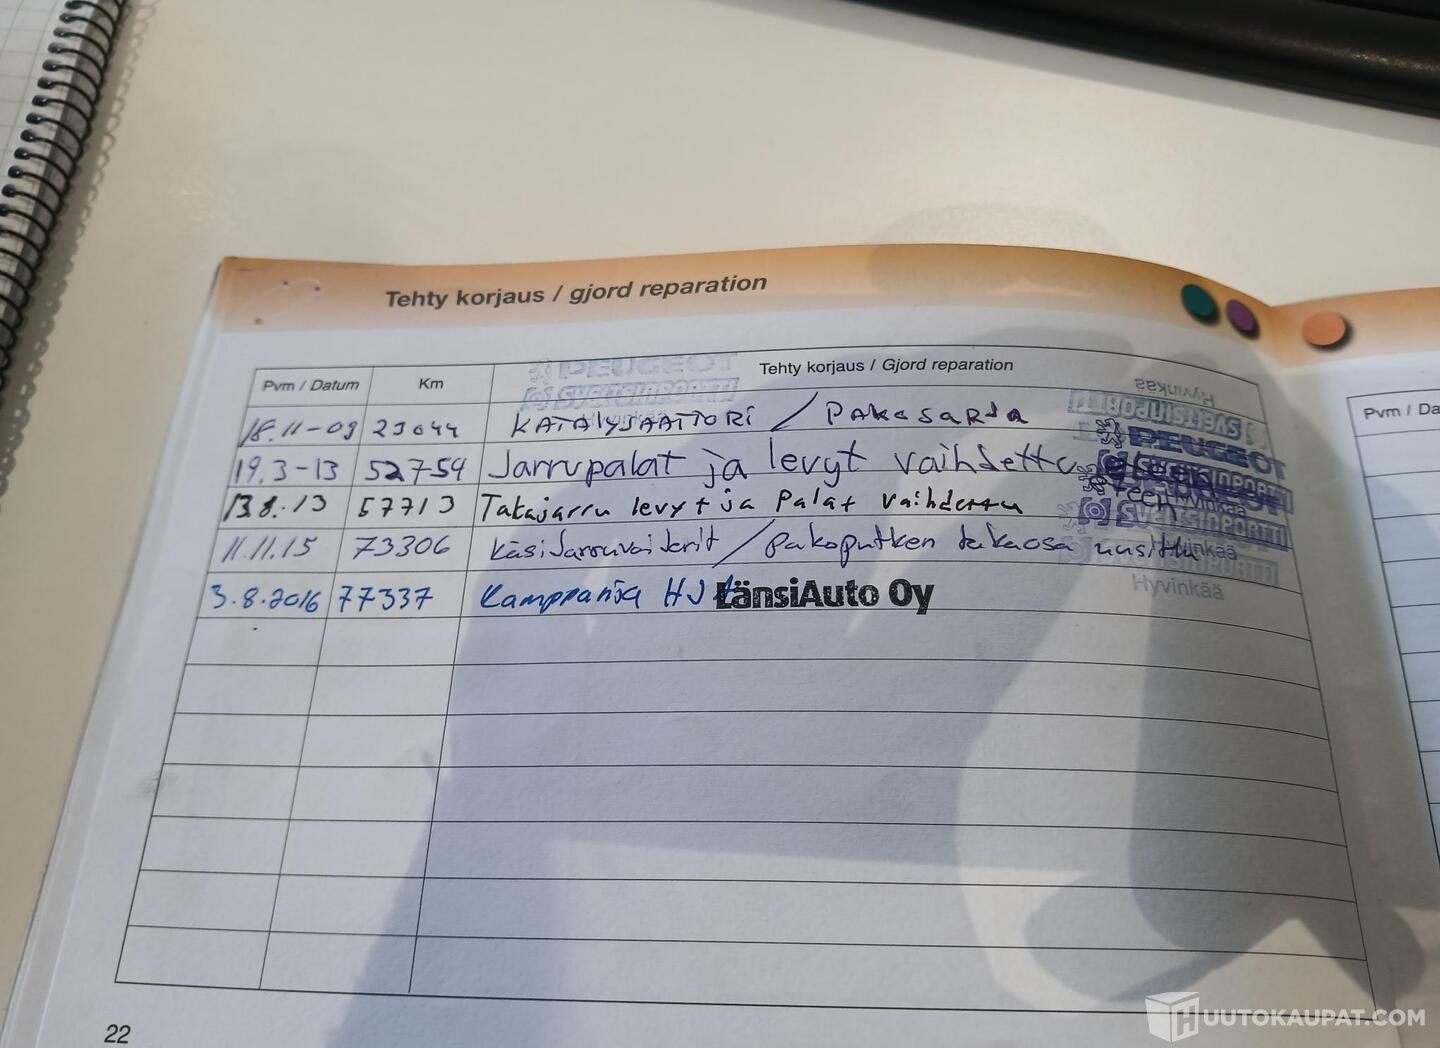 Tehty korjaus / gjord reparation
Pvm / Datum Km Tehty korjaus / Gjord reparation
PEUGEOT
SVEITSINPORTTI
Hyvinkää
18.11-09 23044 KATALYSAATTORI / PAKOSARJA
19.3-13 52754 Jarrupalat ja levyt vaihdettu
13.8.13 57713 Takajarru levyt ja Palat vaihdettu
11.11.15 73306 Käsijarruvaijerit / pakoputken takaosa uusittu
3.8.2016 77337 Kamppanja HJ
LänsiAuto Oy
Hyvinkää
SVEITSINPORTTI
PEUGEOT
SVEITSINPORTTI
Hyvinkää
SVEITSINPORTTI
Hyvinkää
SVEITSINPORTTI
Hyvinkää
Pvm / Da
22
HUUTOKAUPAT.COM